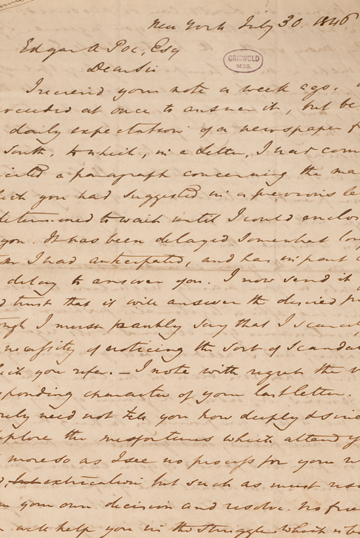 New York July 30. 1846
Edgar A Poe, Esq
GRISWOLD
MSS.
Dear Sir
I received your note a week ago,
proceeded at once to answer it, but be
daily expectation of a newspaper f
South, to which, in a letter, I had com
a paragraph concerning the ma
which you had suggested in a previous le
determined to wait until I could enclos
you. It has been delayed somewhat lon
I had anticipated, and has in part
delay to answer you. I now send it
trust that it will answer the desired
though I must frankly say that I scarce
necessity of noticing the sort of scandal
which you refer. — I note with regret the
desponding character of your last letter.
need not tell you how deeply & since
deplore the misfortunes which attend y
more so as I see no process for your
extrication but such as must
your own decision and resolve. No fri
help you in the struggle which is be